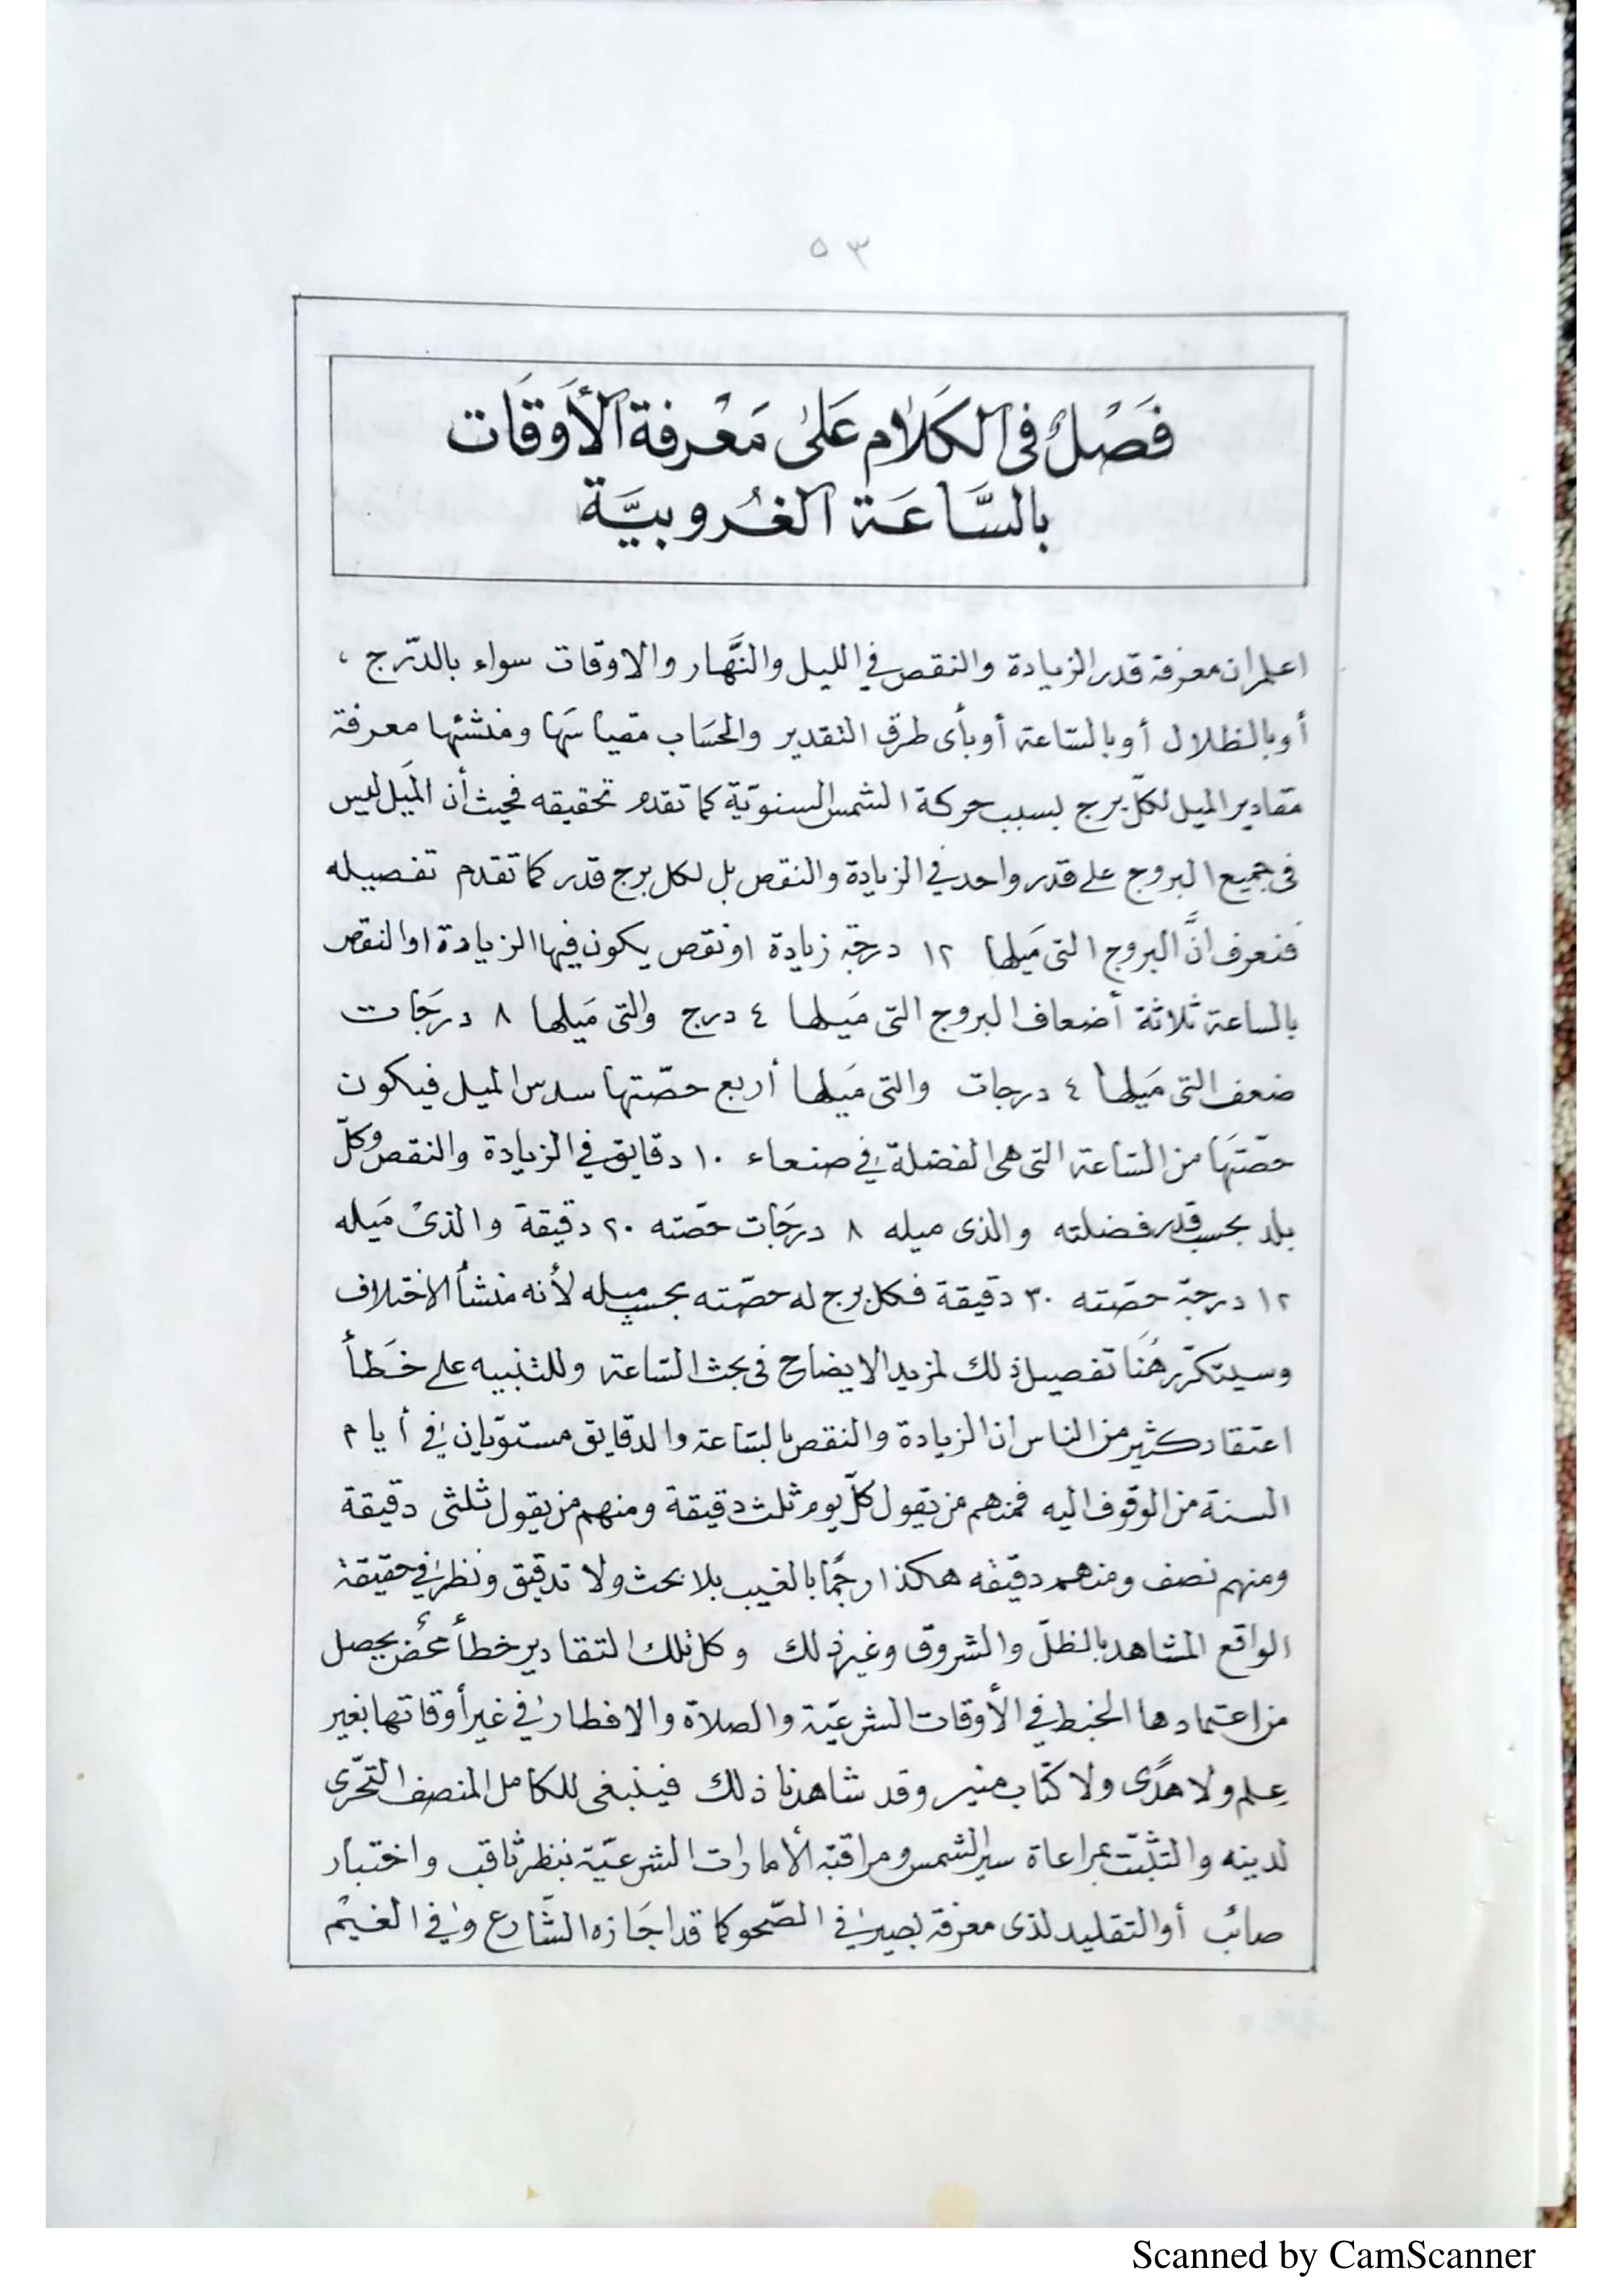 ٥٣
فَصْلٌ فى الكَلَام عَلىٰ مَعْرفة الأَوقَات
بالسَّاعَة الغُروبيَّة
اعلم ان معرفة قدر الزيادة والنقص في الليل والنَّهار والاوقات سواء بالدّرج ،
أو بالظلال أو بالسّاعة أو بأى طرق التقدير والحسَاب مقياسَها ومنشئها معرفة
مقادير الميل لكلّ برج بسبب حركة الشمس السنويّة كما تقدم تحقيقه فحيث أن المَيل ليس
فى جميع البروج على قدر واحد في الزيادة والنقص بل لكل برج قدر كما تقدم تفصيله
فنعرف انَّ البروج التى مَيلها ١٢ درجة زيادة او نقص يكون فيها الزيادة او النقص
بالساعة ثلاثة أضعاف البروج التى ميلها ٤ درج والتى مَيلها ٨ درجَات
ضعف التى مَيلها ٤ درجات والتى مَيلها أربع حصّتها سدس الميل فيكون
حصّتهَا من السّاعة التى هى الفضلة في صنعاء ١٠ دقايق في الزيادة والنقص وكلّ
بلد بحسب قدر فضلته والذى ميله ٨ درجَات حصّته ٢٠ دقيقة والذىْ مَيله
١٢ درجة حصّته ٣٠ دقيقة فكل برج له حصّته بحسب ميله لأنه منشأ الاختلاف
وسيتكرّر هُنَا تفصيل ذلك لمزيد الايضاح فى بحث السّاعة وللتنبيه على خَطأ
اعتقاد كثير من الناس ان الزيادة والنقص بالسّاعة والدقايق مستويان في أيام
السنة من الوقوف اليه فمنهم من يقول كلّ يوم ثلث دقيقة ومنهم من يقول ثلثى دقيقة
ومنهم نصف ومنهم دقيقه هكذا رجمًا بالغيب بلا بحث ولا تدقيق ونظر في حقيقة
الواقع المشاهد بالظلّ والشروق وغير ذلك وكل تلك التقادير خطأ محُض يحصل
من اعتمادها الخبط في الأوقات الشرعيّة والصلاة والافطار في غير أوقاتها بغير
عِلم ولا هدًى ولا كتاب منير وقد شاهدنا ذلك فينبغى للكامل المنصف التحّرى
لدينه والتثبّت بمراعاة سير الشمس ومراقبة الأمارات الشرعيّة بنظر ثاقب واختبار
صائب أو التقليد لذى معرفة بصير في الصّحو كما قد اجَازه الشّارع وفي الغيْم
Scanned by CamScanner